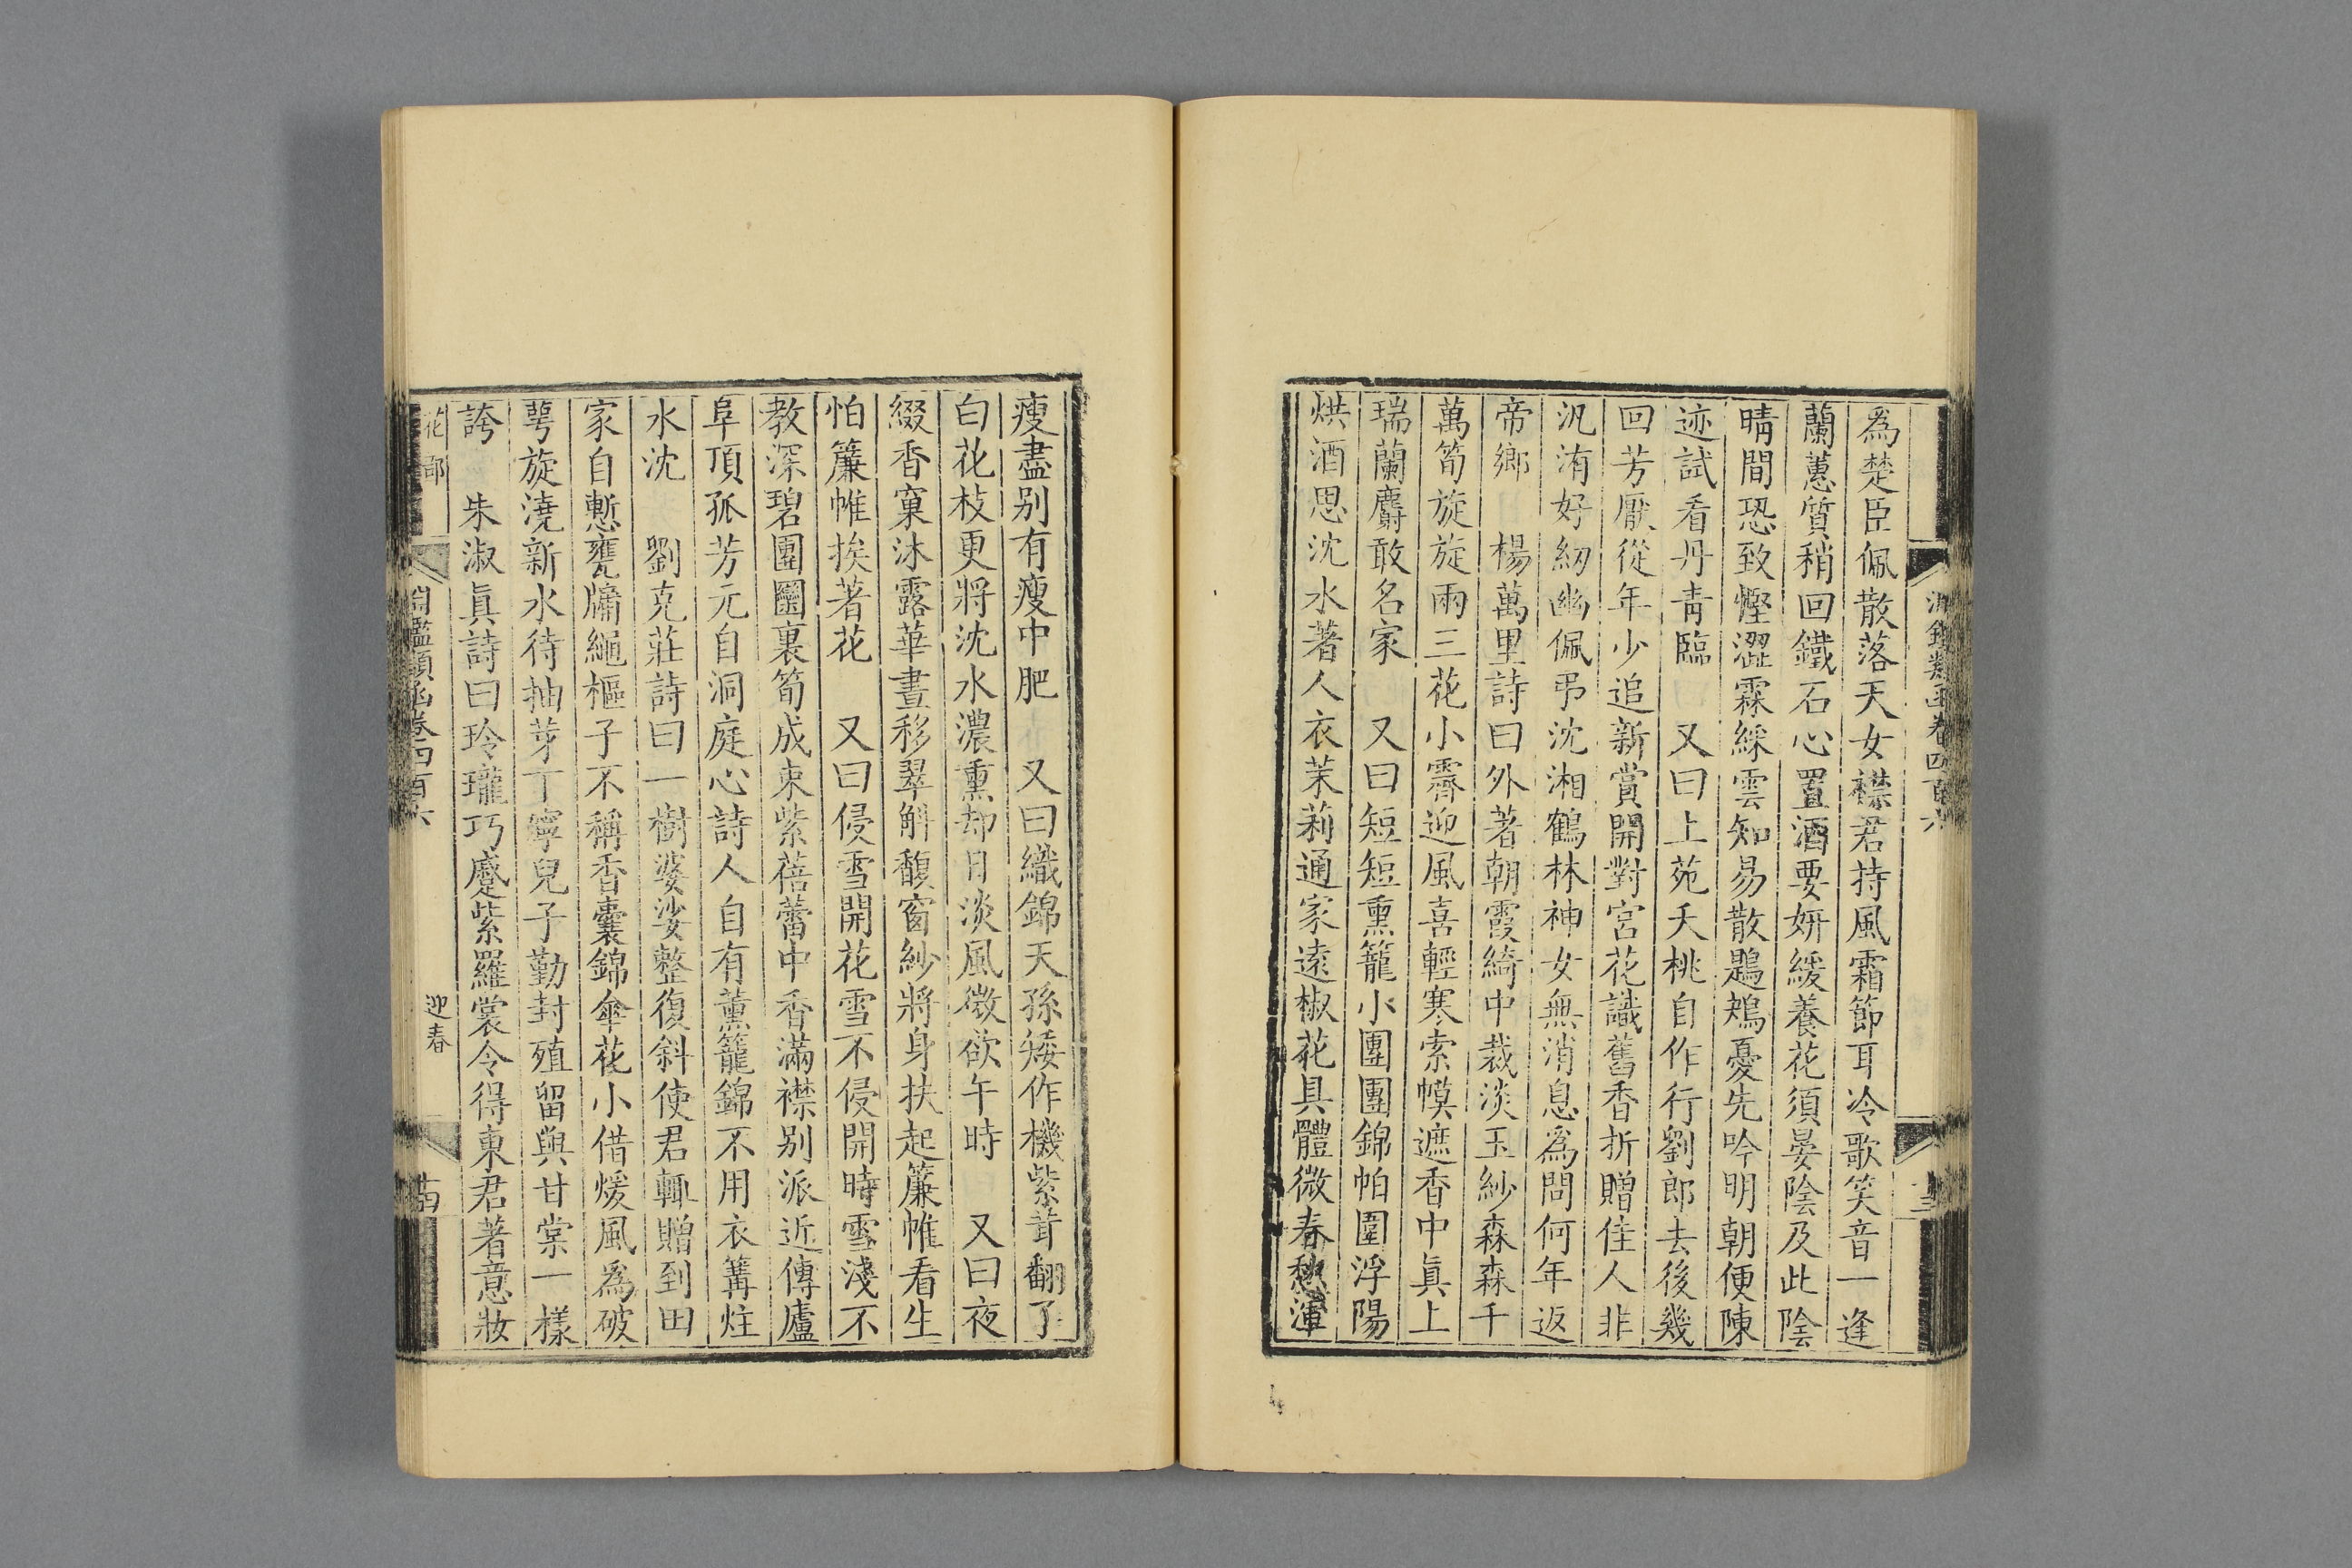 淵鑑類函卷四百六
爲楚臣佩散落天女襟君持風霜節耳冷歌笑音一逢
蘭蕙質稍回鐵石心置酒要姸緩養花須晏陰及此陰
晴間恐致慳澀霖綵雲知易散鶗鴂憂先吟明朝便陳
迹試看丹青臨　又曰上苑夭桃自作行劉郎去後幾
回芳厭從年少追新賞開對宮花識舊香折贈佳人非
汎洧好紉幽佩弔沈湘鶴林神女無消息爲問何年返
帝鄉　楊萬里詩曰外著朝霞綺中裁淡玉紗森森千
萬筍旋旋兩三花小霽迎風喜輕寒索幙遮香中眞上
瑞蘭麝敢名家　又曰短短熏籠小團團錦帕圍浮陽
烘酒思沈水著人衣茉莉通家遠椒花具體微春愁渾
瘦盡别有瘦中肥　又曰織錦天孫矮作機紫茸翻了
白花枝更將沈水濃熏却日淡風微欲午時　又曰夜
綴香窠沐露華晝移翠斛馥窗紗將身扶起簾帷看生
怕簾帷挨著花　又曰侵雪開花雪不侵開時雪淺不
教深碧團圞裏筍成束紫蓓蕾中香滿襟别派近傳廬
阜頂孤芳元自洞庭心詩人自有薰籠錦不用衣篝炷
水沈　劉克莊詩曰一樹婆娑整復斜使君輒贈到田
家自慙甕牖繩樞子不稱香囊錦傘花小借煖風爲破
萼旋澆新水待抽芽丁寧兒子勤封殖留與甘棠一樣
誇　朱淑眞詩曰玲瓏巧蹙紫羅裳令得東君著意妝
花部
淵鑑類函卷四百六
迎春